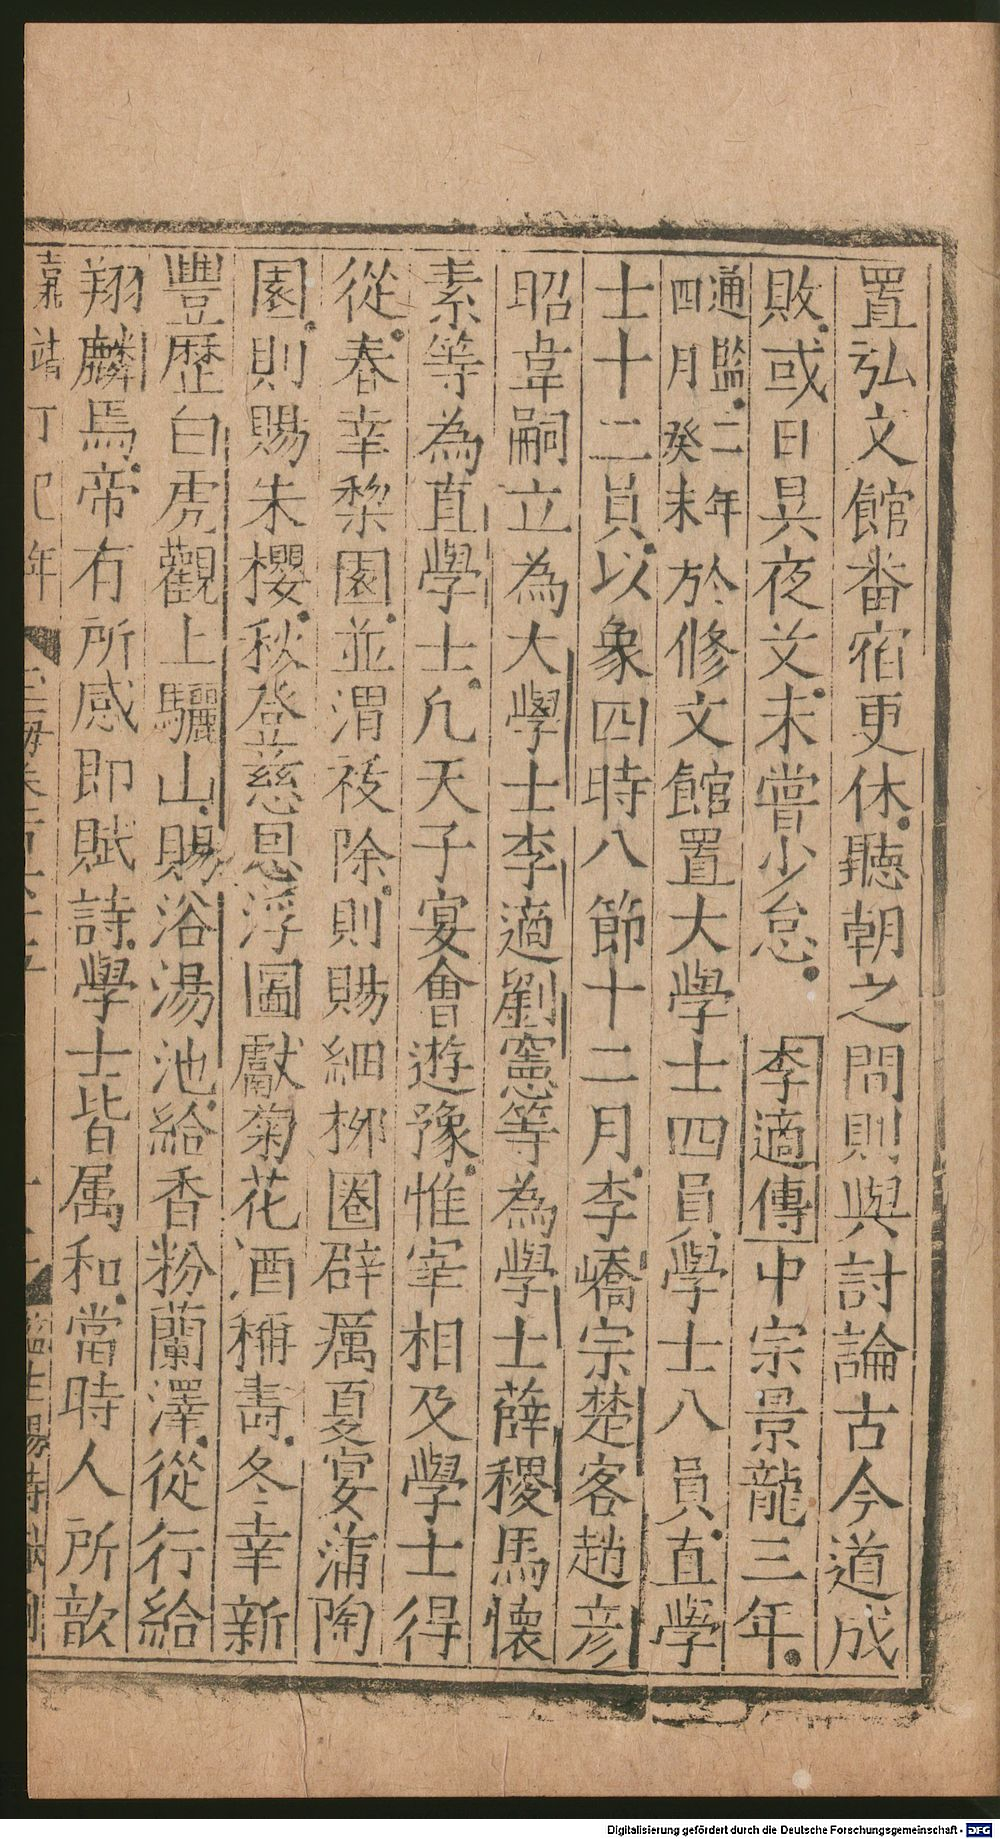 置弘文館番宿更休聽朝之間則與討論古今道成
敗或日昃夜艾未嘗少怠李適傳中宗景龍三年
通監二年
四月癸未
於修文館置大學士四員學士八員直學
士十二員以象四時八節十二月李嶠宗楚客趙彦
昭韋嗣立為大學士李適劉憲等為學士薛稷馬懐
素等為直學士凡天子宴會遊豫惟宰相及學士得
從春幸棃園並渭祓除則賜細栁圈辟厲夏宴蒲陶
園則賜朱櫻秋登慈恩浮圖獻菊花酒稱壽冬幸新
豐歷白虎觀上驪山賜浴湯池給香粉蘭澤從行給
翔麟馬帝有所感即賦詩學士皆属和當時人所歆
嘉靖丁巳年 玉海卷 監生 
Digitalisierung gefördert durch die Deutsche Forschungsgemeinschaft - DFG